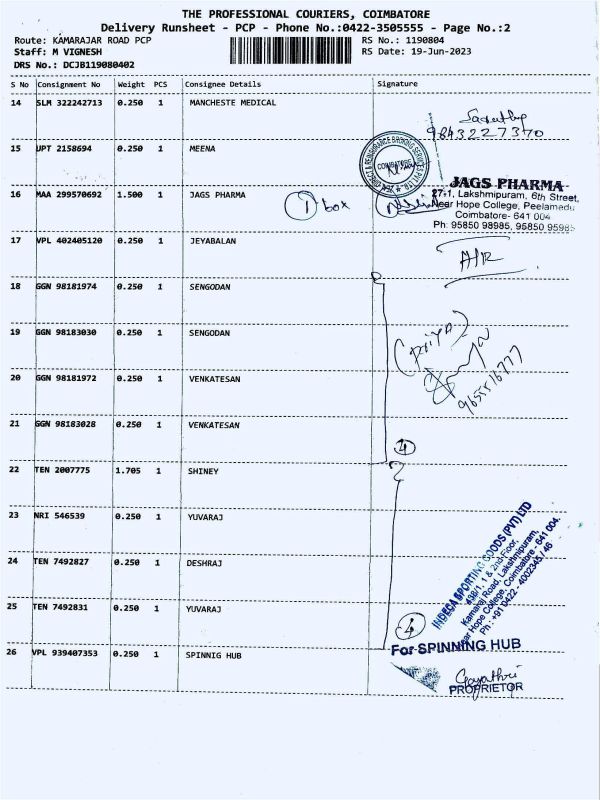 THE PROFESSIONAL COURIERS, COIMBATORE
Delivery Runsheet - PCP - Phone No.:0422-3505555 - Page No.:2
Route: KAMARAJAR ROAD PCP RS No.: 1190804
Staff: M VIGNESH RS Date: 19-Jun-2023
DRS No.: DCJB119080402
S No Consignment No Weight PCS Consignee Details Signature
14 SLM 322242713 0.250 1 MANCHESTE MEDICAL
9843227370
15 UPT 2158694 0.250 1 MEENA
COIMBATORE
16 MAA 299570692 1.500 1 JAGS PHARMA 1 box
JAGS PHARMA
27-1, Lakshmipuram, 6th Street,
Near Hope College, Peelamedu
Coimbatore- 641 004
Ph: 95850 98985, 95850 95985
17 VPL 402405120 0.250 1 JEYABALAN
18 GGN 98181974 0.250 1 SENGODAN
19 GGN 98183030 0.250 1 SENGODAN
(PRIYA)
20 GGN 98181972 0.250 1 VENKATESAN
21 GGN 98183028 0.250 1 VENKATESAN
4
22 TEN 2007775 1.705 1 SHINEY
23 NRI 546539 0.250 1 YUVARAJ
24 TEN 7492827 0.250 1 DESHRAJ
25 TEN 7492831 0.250 1 YUVARAJ
4
INDECA SPORTING GOODS (PVT) LTD
438/1, 1 & 2nd Floor,
Kamaraj Road, Lakshmipuram,
Near Hope College, Coimbatore - 641 004.
Ph : +91 0422 - 4002345 / 46
For SPINNING HUB
26 VPL 939407353 0.250 1 SPINNIG HUB
Gayathri
PROPRIETOR